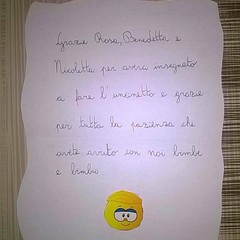 Grazie Rosa, Benedetta e
Nicoletta per averci insegnato
a fare l'uncinetto e grazie
per tutta la pazienza che
avete avuto con noi bimbe
e bimbi